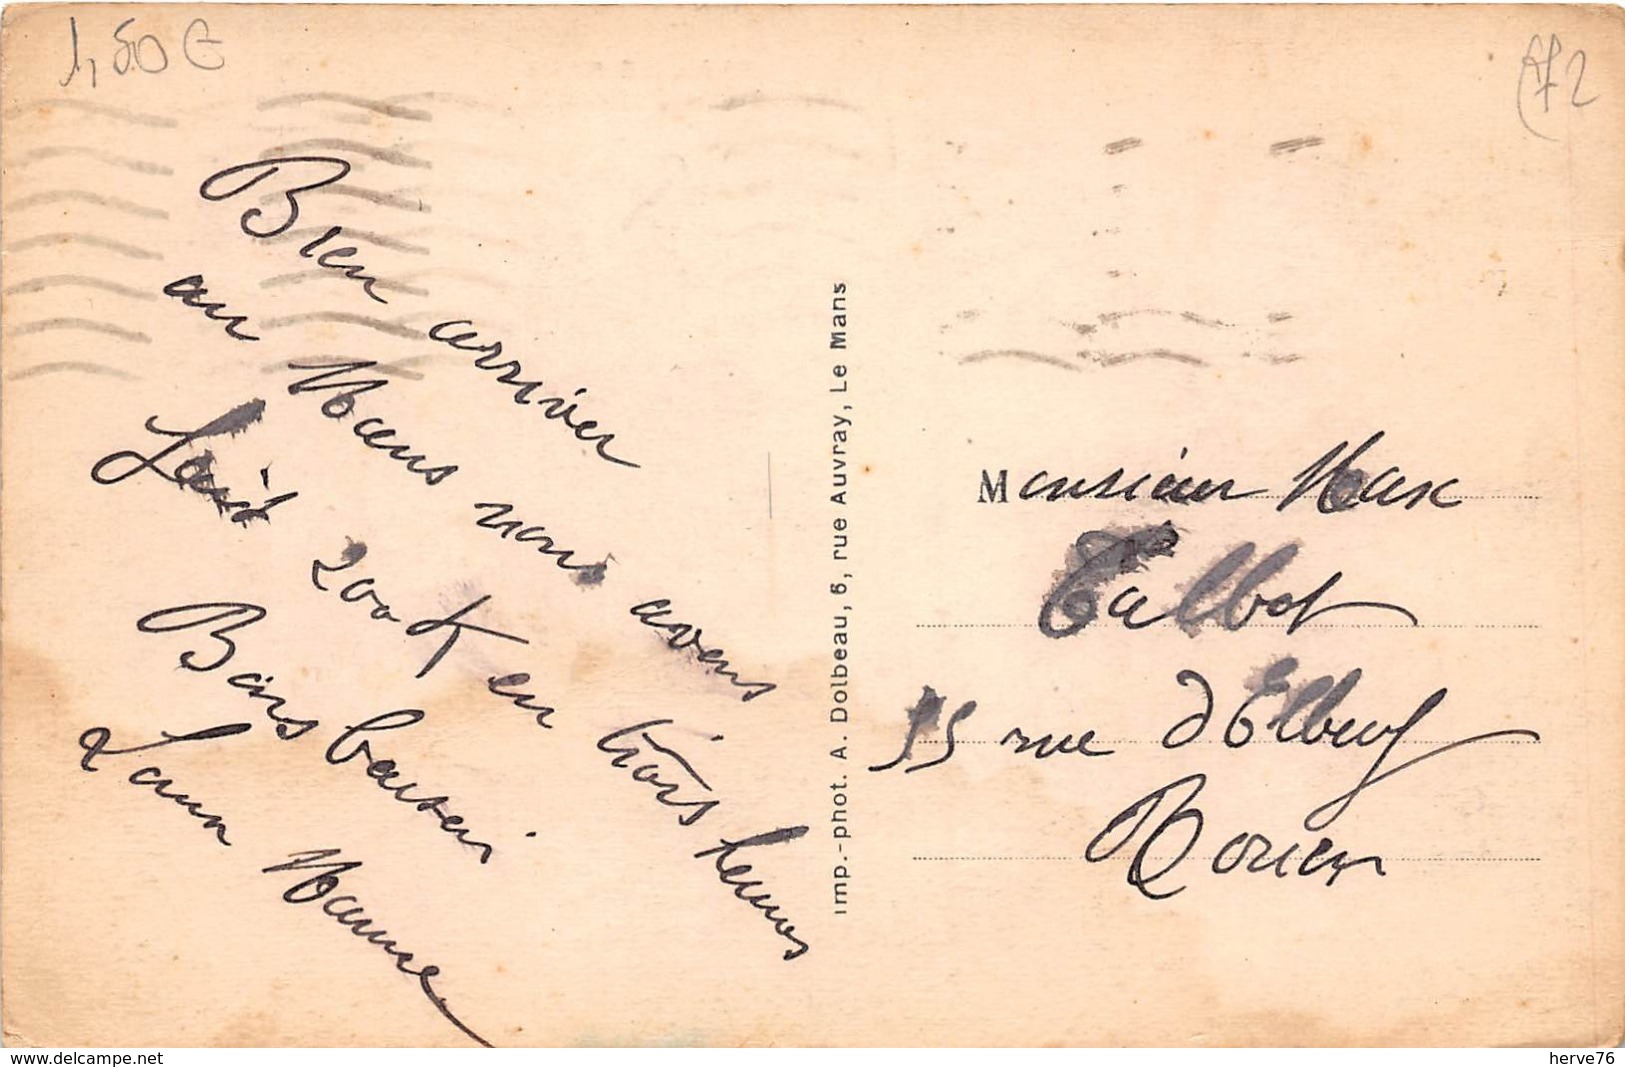 1,50 €
72
Bien arriver
au Mans nous avons
fait 200 K en trois heures
Bons baiser
Imp.-phot. A. Dolbeau, 6, rue Auvray, Le Mans
Monsieur Max
Talbot
55 rue d'Elbeuf
Rouen
www.delcampe.net
herve76